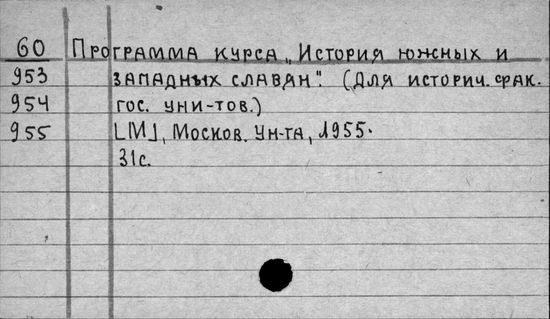 60 Программа курса „История южных и
953 западных славян". (Для историч. фак.
954 гос. уни-тов.)
955 [М], Москов. Ун-та, 1955.
31с.